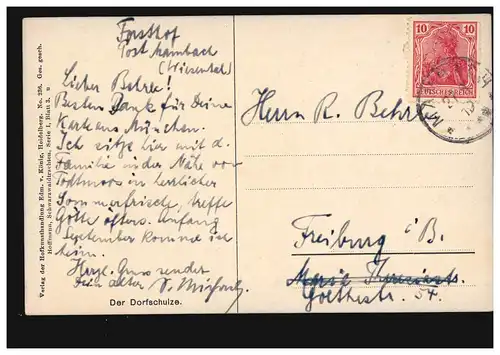 Forsthof
Post Mambach
(Wiesental)
Lieber Behrle!
Besten Dank für Deine
Karte aus München.
Ich sitze hier mit d.
Familie in der Nähe von
Todtmoos in herrlicher
Sommerfrische, treffe
Götte öfters. Anfang
September komme ich
heim.
Herzl. Gruss sendet
Dein alter
Der Dorfschulze.
Verlag der Hofkunsthandlung Edm. v. König, Heidelberg. No. 286. Ges. gesch.
Hoffmann, Schwarzwaldtrachten, Serie 1, Blatt 3.
10 10
DEUTSCHES REICH
Herrn R. Behrle
Freiburg i/B.
Goethestr. 54.